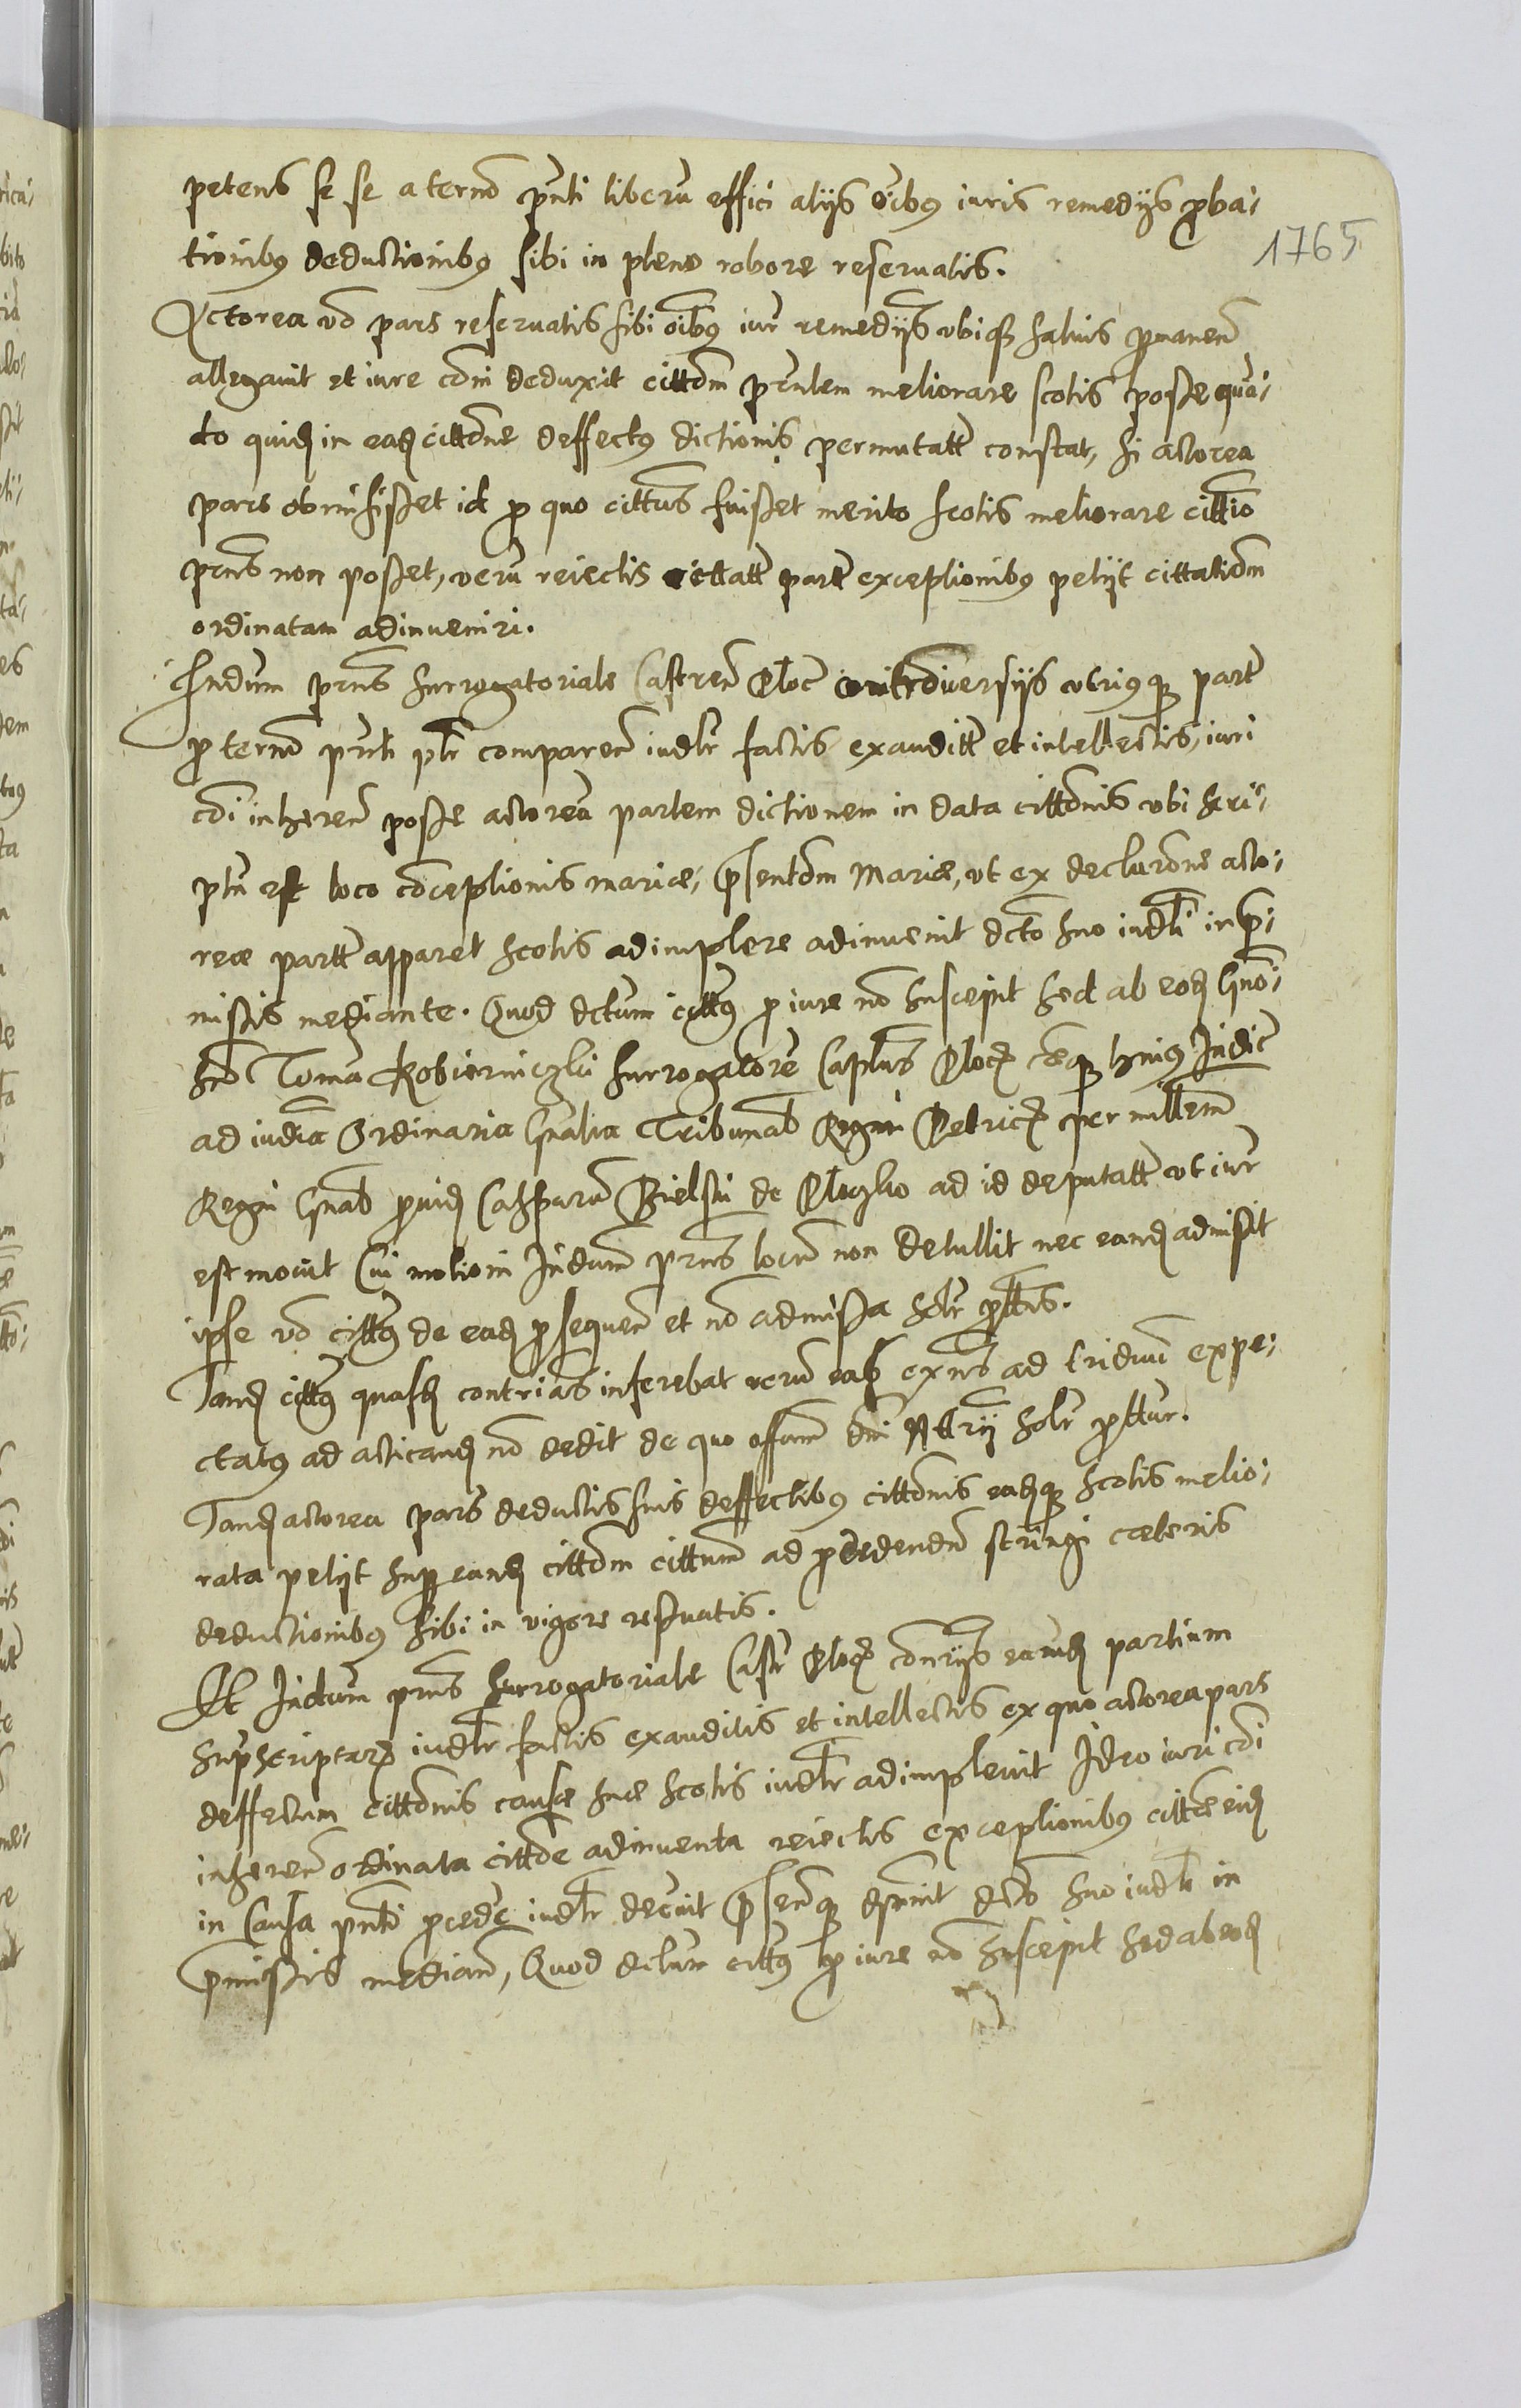 petens se se a termo pnti liberu effici alijs oibus iuris remedijs proba-
tionibus deductionibus sibi in pleno robore reseruatis.
1765
Actorea vo pars reseruatis sibi oibus iur remedijs vbiq saluis permanen
allegauit et iure coni deduxit cittom pntem meliorare scotis posse qua-
do quidem in eadem cittone deffectus dictionis permutatt constat, si actorea
pars obmisisset id pro quo cittus fuisset merito scotis meliorare cittio
pns non posset, veru reiectis cittatt part exceptionibus petijt cittatiom
ordinatam adinueniri.
Iudum pns surrogatoriale Castren Ploc controuersijs vtriusque part
pro termo pnti plr comparen iudlr factis exauditt et intellectis, iuri
coi inheren posse actorea partem dictionem in data cittonis vbi scri-
ptu est loco conceptionis mariæ, præsentom Mariæ, vt ex declarone acto-
reæ partt apparet scotis adimplere adinuenit dcto suo iudli in præ-
missis mediante. Quod dctum cittus pro iure no suscepit sed ab eodem Gnoi-
so Toma Kobierniczki surrogatore Captus Ploc eq huius Judic
ad iudia Ordinaria Gnalia Tribunal Regni Petric per millem
Regni Gnal prouid Casparu Bielski de Ploczko ad id deputatt vt iur
est mouit Cui motioni Judum pns locu non detullit nec eandem admisit
ipse vo cittus de eadem prosequen et no admissa solr prottus.
Tandem cittus quasdem contrias inferebat veru eas exns ad triduu expe-
ctatus ad acticand no dedit de quo offum dni Attrij solr prottur.
Tandem actorea pars deductis suis deffectibus cittonis eademque scotis melio-
rata petijt super eandem cittom cittum ad procedendu stringi cæteris
deductionibus sibi in vigore reseruatis.
Et Iudum pns surrogatoriale Castr Ploc contrijs earundem partium
suprascriptaru iudlr factis exauditis et intellectis ex quo actorea pars
deffectum cittonis causæ suæ scotis iudlr adimpleuit Ideo iuri coi
inheren ordinata cittoe adinuenta reiectis exceptionibus citteeidem
in Causa pnti procedere iudlr decreuit præsenque dcto suo iudli in
præmissis median, Quod dctum cittus pro iure no suscepit sed ab eodem